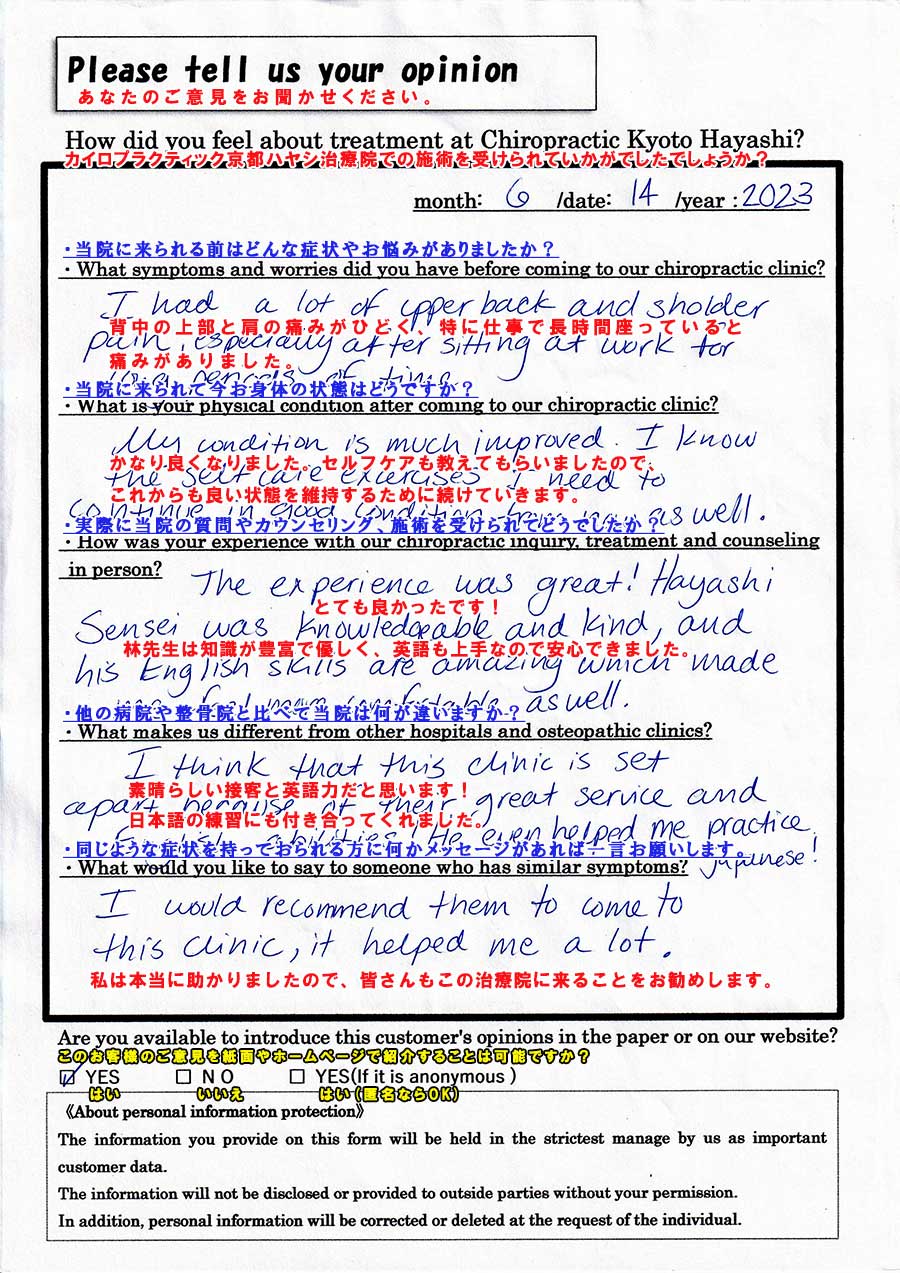 Please tell us your opinion
あなたのご意見をお聞かせください。
How did you feel about treatment at Chiropractic Kyoto Hayashi?
カイロプラクティック京都ハヤシ治療院での施術を受けられていかがでしたでしょうか？
month: 6 /date: 14 /year : 2023
・当院に来られる前はどんな症状やお悩みがありましたか？
・What symptoms and worries did you have before coming to our chiropractic clinic?
I had a lot of upper back and sholder
背中の上部と肩の痛みがひどく、特に仕事で長時間座っていると
pain, especially after sitting at work for
痛みがありました。
long periods of time
・当院に来られて今お身体の状態はどうですか？
・What is your physical condition after coming to our chiropractic clinic?
My condition is much improved. I know
かなり良くなりました。セルフケアも教えてもらいましたので、
the self care excercises I need to
これからも良い状態を維持するために続けていきます。
continue in good condition as well.
・実際に当院の質問やカウンセリング、施術を受けられてどうでしたか？
・How was your experience with our chiropractic inquiry, treatment and counseling
in person?
The experience was great! Hayashi
とても良かったです！
Sensei was knowledgeable and kind, and
林先生は知識が豊富で優しく、英語も上手なので安心できました。
his English skills are amazing which made
me feel more comfortable as well.
・他の病院や整骨院と比べて当院は何が違いますか？
・What makes us different from other hospitals and osteopathic clinics?
I think that this clinic is set
素晴らしい接客と英語力だと思います！
apart because of their great service and
日本語の練習にも付き合ってくれました。
English abilities! He even helped me practice
・同じような症状を持っておられる方に何かメッセージがあれば一言お願いします。
Japanese!
・What would you like to say to someone who has similar symptoms?
I would recommend them to come to
this clinic, it helped me a lot.
私は本当に助かりましたので、皆さんもこの治療院に来ることをお勧めします。
Are you available to introduce this customer's opinions in the paper or on our website?
このお客様のご意見を紙面やホームページで紹介することは可能ですか？
☑ YES □ NO □ YES(If it is anonymous )
はい いいえ はい（匿名ならOK）
《About personal information protection》
The information you provide on this form will be held in the strictest manage by us as important
customer data.
The information will not be disclosed or provided to outside parties without your permission.
In addition, personal information will be corrected or deleted at the request of the individual.